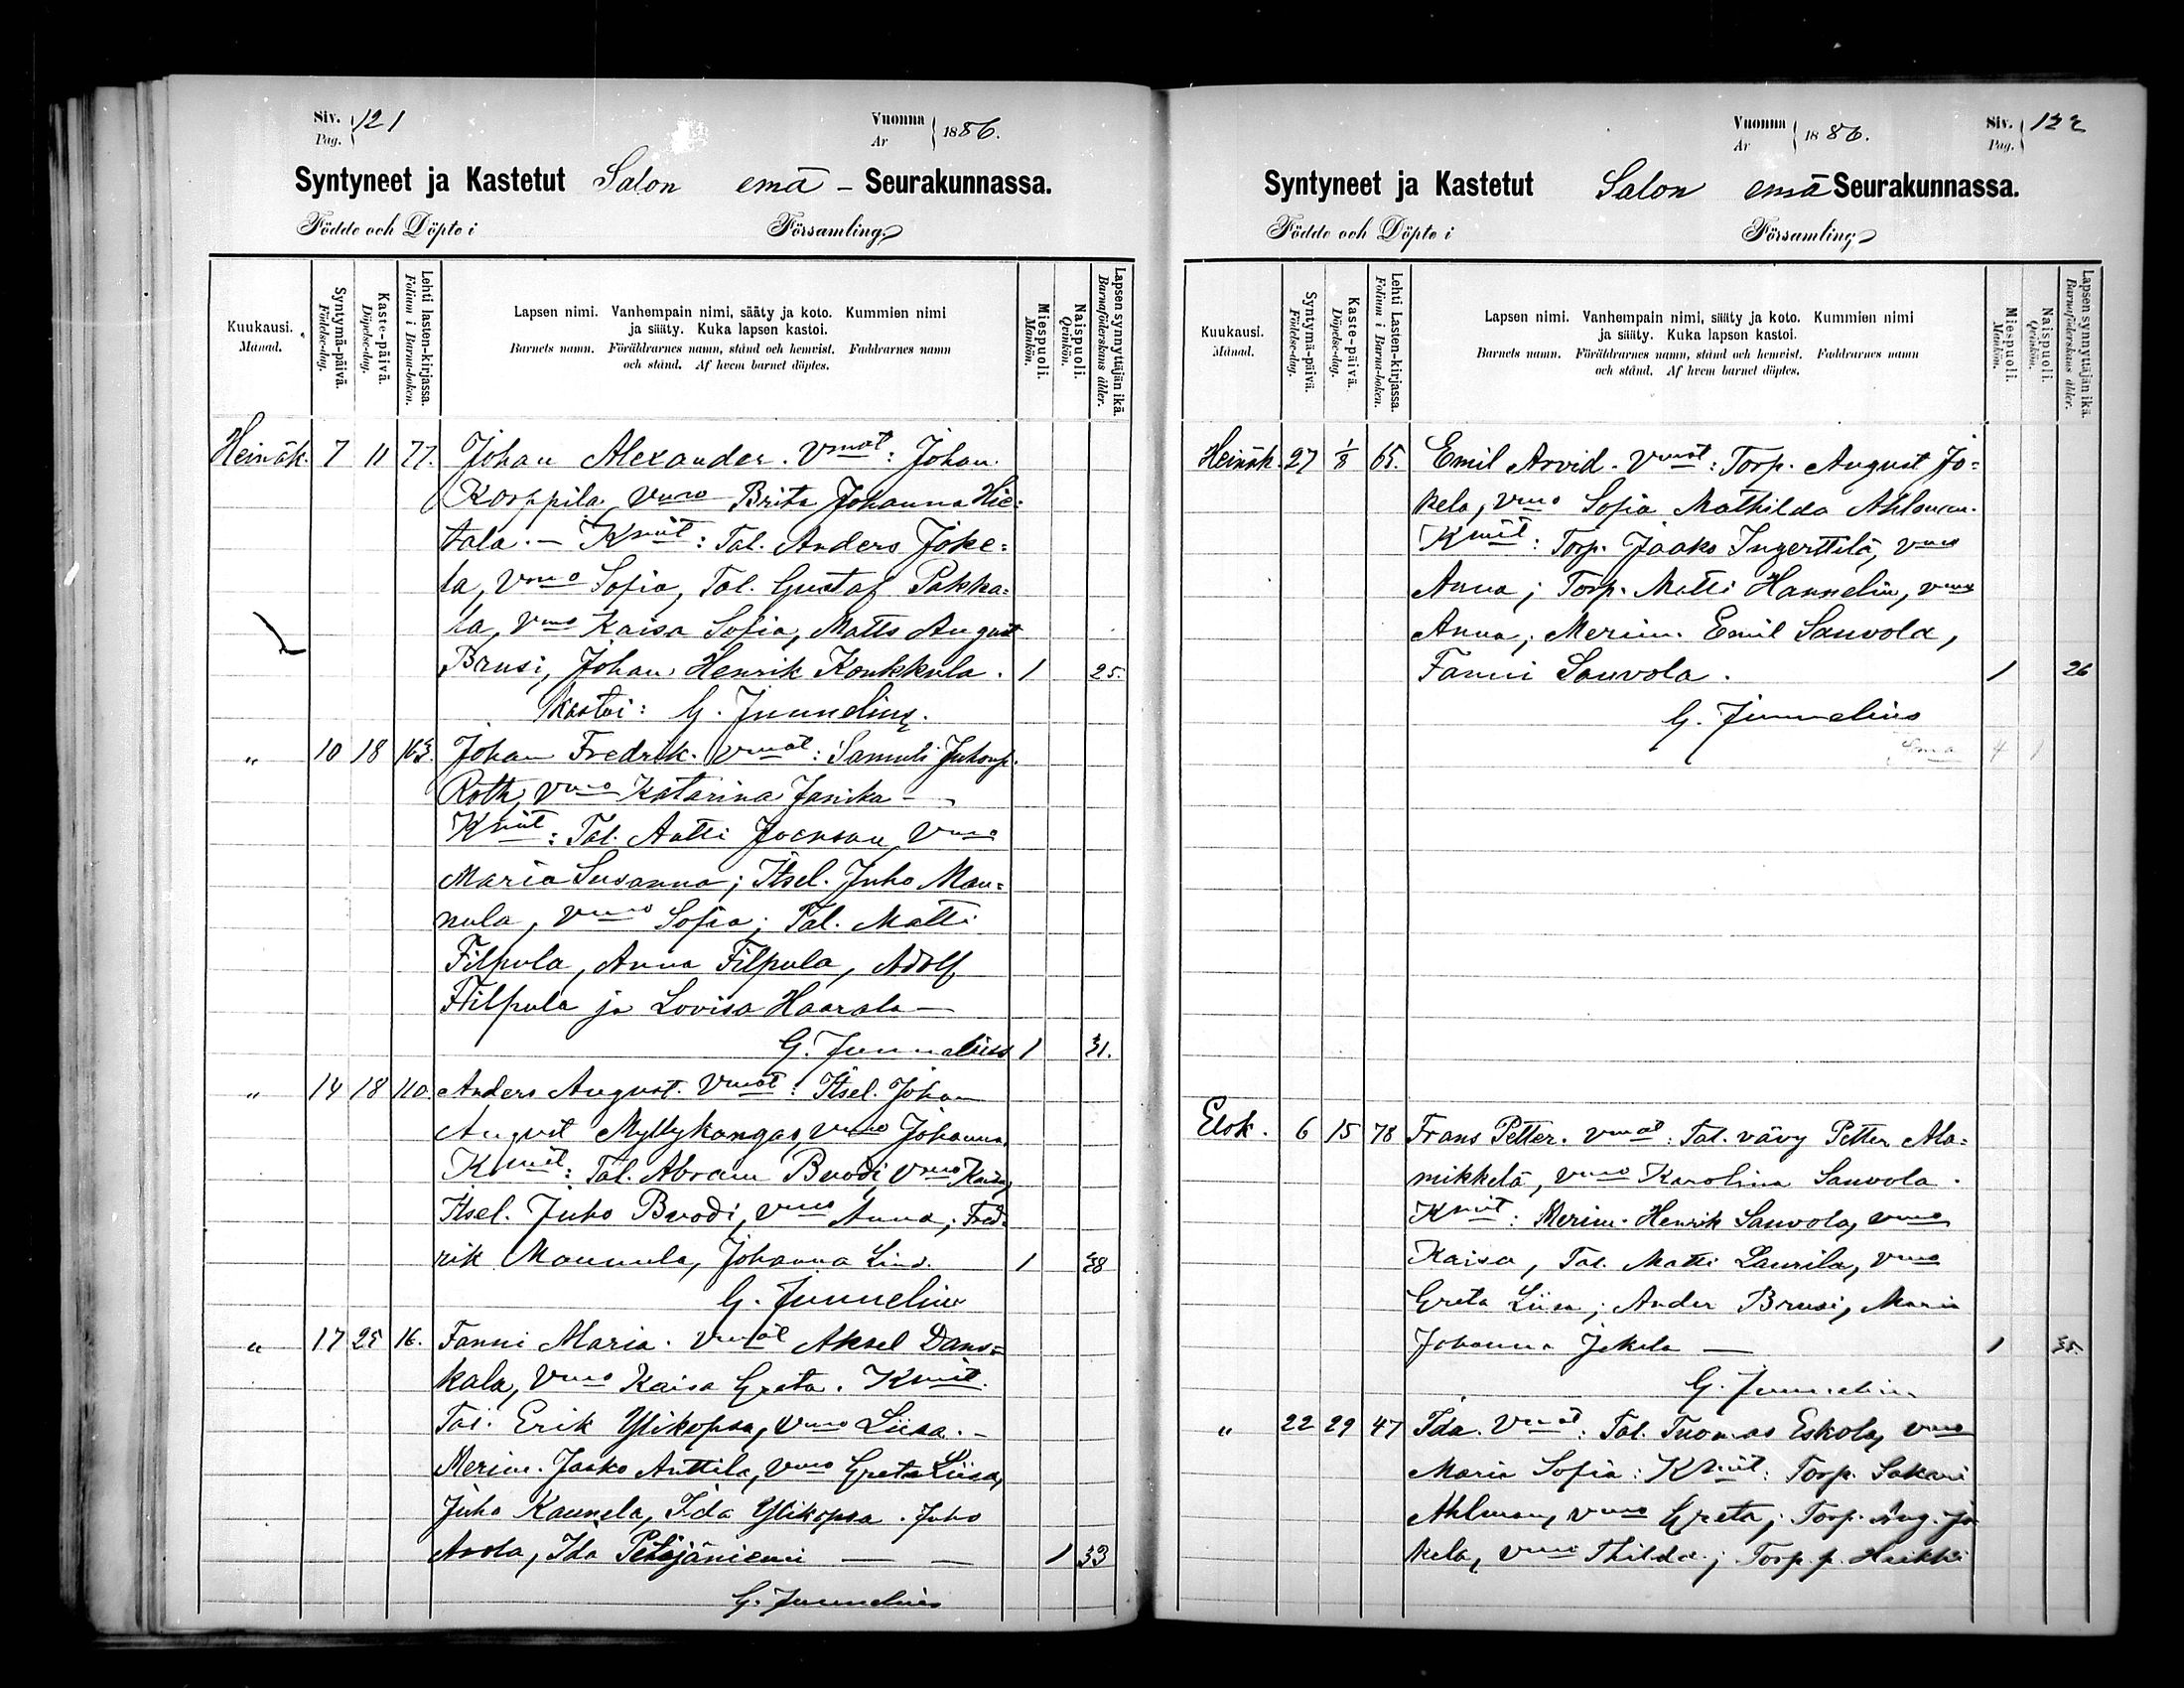 Siv. Pag. 121
Vuonna År 1886.
Syntyneet ja Kastetut Salon emä – Seurakunnassa.
Födde och Döpte i Församling.
Kuukausi. Månad.
Syntymä-päivä. Födelse-dag.
Kaste-päivä. Döpelse-dag.
Lehti lasten-kirjassa. Folium i Barna-boken.
Lapsen nimi. Vanhempain nimi, sääty ja koto. Kummien nimi
ja sääty. Kuka lapsen kastoi.
Barnets namn. Föräldrarnes namn, stånd och hemvist. Faddrarnes namn
och stånd. Af hvem barnet döptes.
Miespuoli. Mankön.
Naispuoli. Qvinkön.
Lapsen synnyttäjän ikä. Barnaföderskans ålder.
Heinäk. 7 11 77. Johan Alexander. Vmat: Johan
Korppila, Vmo Brita Johanna Hie-
tala. – Kmit: Tal. Anders Joke-
la, Vmo Sofia, Tal. Gustaf Pakka-
la, Vmo Kaisa Sofia, Matts August
Brusi, Johan Henrik Konkkula. 1 25.
Kastoi: G. Junnelius.
" 10 18 163. Johan Fredrik. Vmat: Samuli Juhonp.
Roth, Vmo Katarina Janika –
Kmit: Tal. Antti Joensuu, Vmo
Maria Susanna; Itsel. Juho Man-
nula, Vmo Sofia; Tal. Matti
Filpula, Anna Filpula, Adolf
Filpula ja Lovisa Haarala –
G. Junnelius 1 31.
" 14 18 110. Anders August. Vmat: Itsel. Johan
August Myllykangas, Vmo Johanna.
Kmit: Tal. Abram Buodi, Vmo Kaisa,
Itsel. Juho Buodi, Vmo Anna; Fred-
rik Mannula, Johanna Lind. 1 38
G. Junnelius
" 17 25 16. Fanni Maria. Vmat Aksel Dans-
kala, Vmo Kaisa Greta. Kmit.
Tal. Erik Ylikopsa, Vmo Liisa. –
Merim. Jaako Anttila, Vmo Greta Liisa,
Juho Kaunela, Ida Ylikopsa. Juho
Arola, Ida Petäjäniemi – – 1 33
G. Junnelius
Vuonna År 1886.
Siv. Pag. 122
Syntyneet ja Kastetut Salon emä Seurakunnassa.
Födde och Döpte i Församling
Kuukausi. Månad.
Syntymä-päivä. Födelse-dag.
Kaste-päivä. Döpelse-dag.
Lehti Lasten-kirjassa. Folium i Barna-boken.
Lapsen nimi. Vanhempain nimi, sääty ja koto. Kummien nimi
ja sääty. Kuka lapsen kastoi.
Barnets namn. Föräldrarnes namn, stånd och hemvist. Faddrarnes namn
och stånd. Af hvem barnet döptes.
Miespuoli. Mankön.
Naispuoli. Qvinkön.
Lapsen synnyttäjän ikä. Barnaföderskans ålder.
Heinäk. 27 1/8 65. Emil Arvid. Vmat: Torp. August Jo-
kela, Vmo Sofia Mathilda Ahlman.
Kmit: Torp. Jaako Ingerttilä, Vmo
Anna; Torp. Matti Hannelin, Vmo
Anna; Merim. Emil Sauvola,
Fanni Sauvola. 1 26
G. Junnelius
Sma 4 1
Elok. 6 15 78 Frans Petter. Vmat: Tal. vävy Petter Ala-
mikkelä, Vmo Karolina Sauvola.
Kmit: Merim. Henrik Sauvola, Vmo
Kaisa, Tal. Matti Laurila, Vmo
Greta Liisa; Ander Brusi, Maria
Johanna Jokela – 1 35.
G. Junnelius
" 22 29 47 Ida. Vmat: Tal. Tuomas Eskola, Vmo
Maria Sofia: Kmit: Torp. Sakari
Ahlman, Vmo Greta; Torp. Aug. Jo
kela, Vmo Thilda.; Torp. p. Heikki